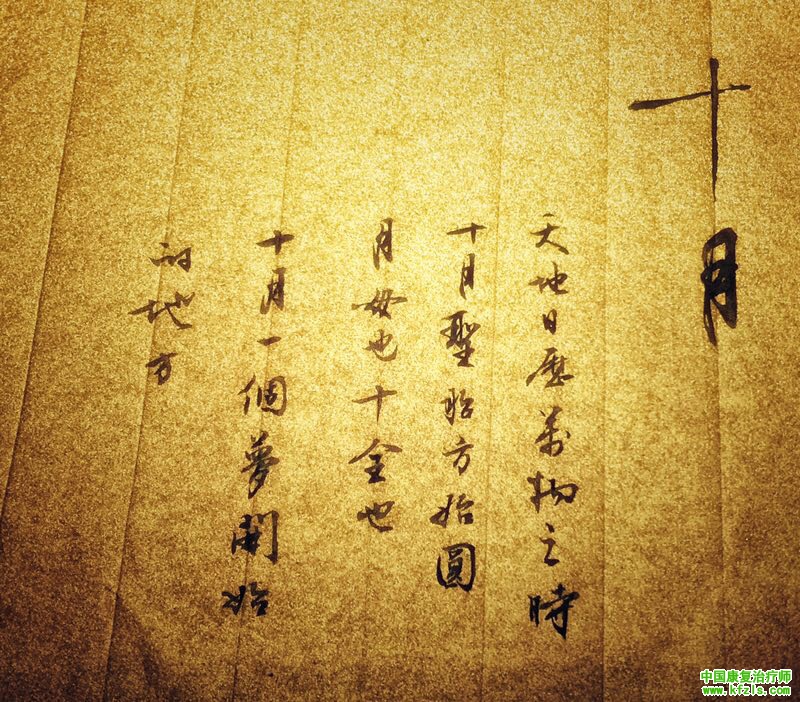 十月
天地日歷萬物之時
十月聖胎方始圓
月母也十全也
十月一個夢開始
的地方
中国康复治疗师
www.kfzls.com